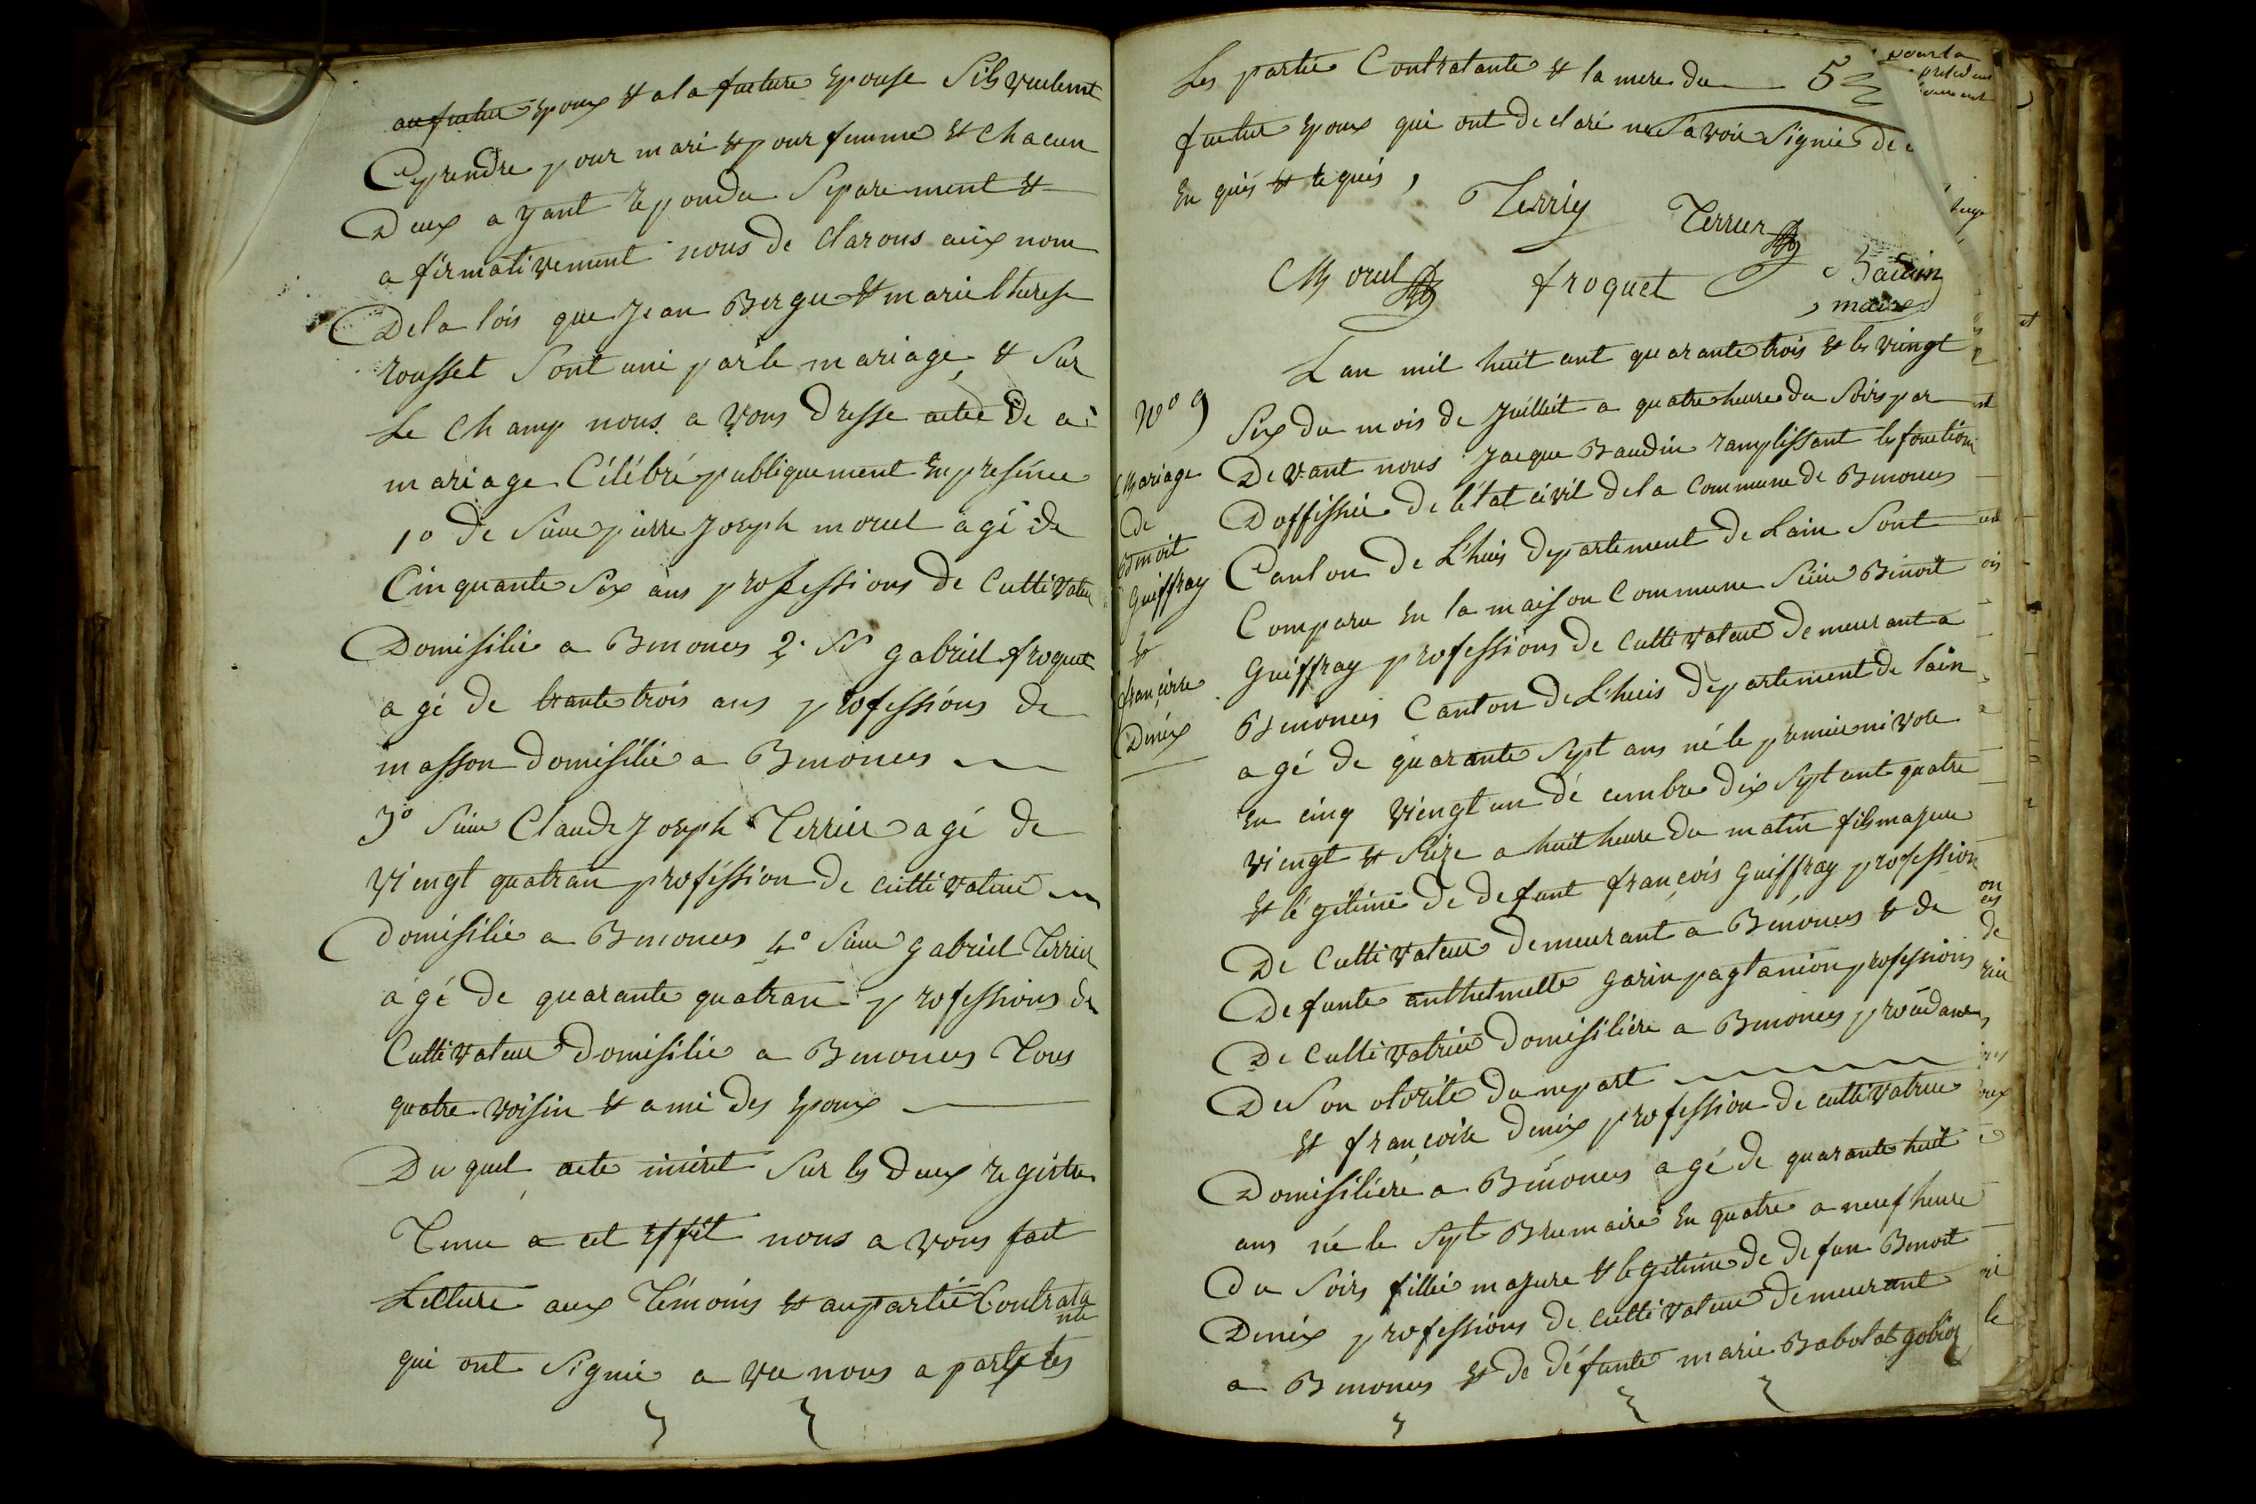 au futur Epoux et a la future Epouse Sils veulent
Ce prendre pour mari et pour femme et Chacun
Deux a yant repondu Separement et
a firmativement nous de clarons aux nom
De la lois que Jean Berger et marie therese
rousset Sont uni par le mariage, et Sur
Le Champ nous a vons Dresse acte de ce
mariage Célébré publiquement En presence
1º de Sieur pierre Joseph morel agé de
Cinquante Six ans professions de Cultivateur
Domisilié a Benonces 2. Sr gabriel froquet
agé de trante trois ans professions de
masson domisilié a Benonces
3º Sieur Claude Joseph Terrier agé de
Viengt quatran profession de cultivateur
domisilié a Benonces 4º Sieur gabriel Terrier
agé de quarante quatran professions de
Cultivateur domisilié a Benonces Tous
quatre voisin et ami des Epoux
Du quel acte inseret Sur les deux registre
Tenu a cet Effet nous a vons fait
Lecture aux Témoins et au partie Contrata
nte
qui ont Signié a vec nous a part les
Les partie Contratante et la mere du
5
pour la
futur Epoux qui ont declaré ne Savoir Signié de ce
En quis et requis,
Terrier
Terrier
Morel
froquet
Baudin
maire
Lan mil huit cent quarante trois et les viengt
Nº 9
Six du mois de Juilliet a quatre heure du Soirs par
Mariage
Devant nous Jacque Baudin ramplissant les fonctions
Doffissié de létat civil de la Commune de Benonces
de
Benoit
Canton de Lhuis departement de Lain Sont
guiffray
Comparu En la maison Commune Sieur Benoit
et
guiffray professions de Cultivateur demeurant a
françoise
Benonces Canton de Lhuis departement de lain
Deniéx
agé de quarante Sept ans né le premier nivose
En cinq viengt un décembre dix Sept cent quatre
viengt et Seize a huit heure du matin fils majeure
et légitime de defunt françois guiffray profession
De Cultivateur demeurant a Bénonces et de
Defunte anthelmette garin pagtanion professions
De Cultivatrice domisiliére a Benonces procédant
De Son otorité dune part
et françoise deniéx profession de cultivatrice
Domisiliére a Bénonces agé de quarante huit
ans né le Sept Brumaire En quatre a neuf heure
Du Soirs fillie majure et legitime de defun Benoit
Deniéx professions de Cultivateur demeurant
a Benonces et de défunte marie Babolat gobioz